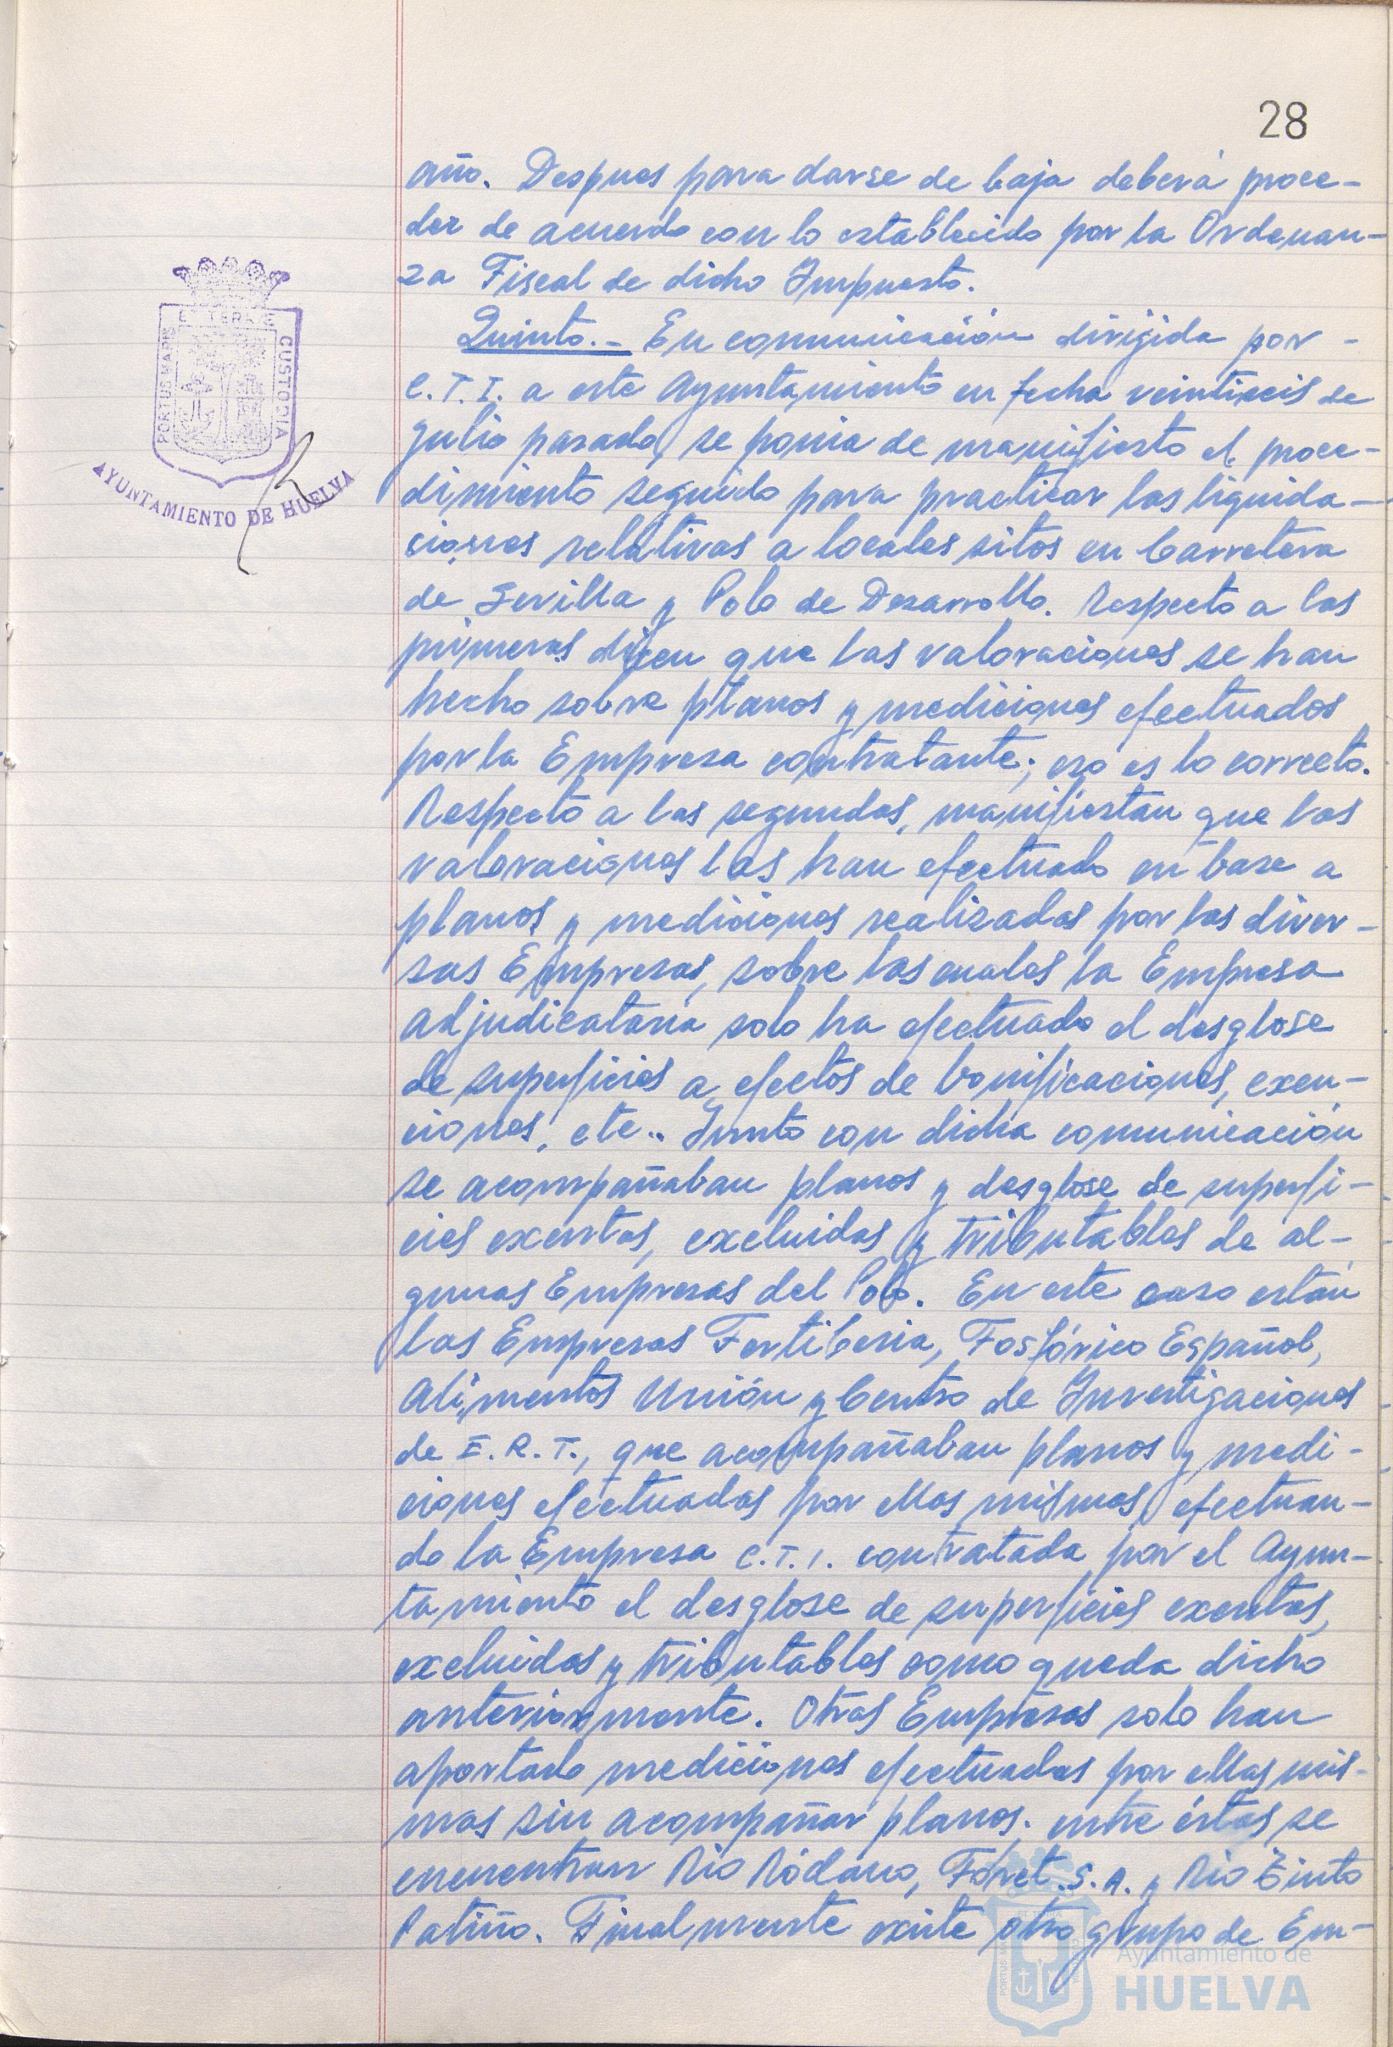 28
año. Despues para darse de baja deberá proce-
der de acuerdo con lo establecido por la Ordenan-
za Fiscal de dicho Impuesto.
Quinto.- En comunicación dirigida por -
C.T.I. a este Ayuntamiento en fecha veintiseis de
julio pasado, se ponia de manifiesto el proce-
dimiento seguido para practicar las liquida-
ciones relativas a locales sitos en Carretera
de Sevilla y Polo de Desarrollo. Respecto a las
primeras dicen que las valoraciones se han
hecho sobre planos y mediciones efectuados
por la Empresa contratante; eso es lo correcto.
Respecto a las segundas, manifiestan que las
valoraciones las han efectuado en base a
planos y mediciones realizadas por las diver-
sas Empresas, sobre las cuales la Empresa
adjudicataria solo ha efectuado el desglose
de superficies a efectos de bonificaciones, exen-
ciones, etc.. Junto con dicha comunicación
se acompañaban planos y desglose de superfi-
cies exentas, excluidas y tributables de al-
gunas Empresas del Polo. En este caso están
las Empresas Fertiberia, Fosfórico Español,
Alimentos Unión y Centro de Investigaciones
de E.R.T., que acompañaban planos y medi-
ciones efectuadas por ellas mismas, efectuan-
do la Empresa C.T.I. contratada por el Ayun-
tamiento el desglose de superficies exentas,
excluidas y tributables como queda dicho
anteriormente. Otras Empresas solo han
aportado mediciones efectuadas por ellas mis-
mas sin acompañar planos; entre éstas se
encuentran Rio Ródano, Foret S.A. y Rio Tinto
Patiño. Finalmente existe otro grupo de Em-
PORTUS MARIS
ET TERRAE
CUSTODIA
AYUNTAMIENTO DE HUELVA
Ayuntamiento de
HUELVA